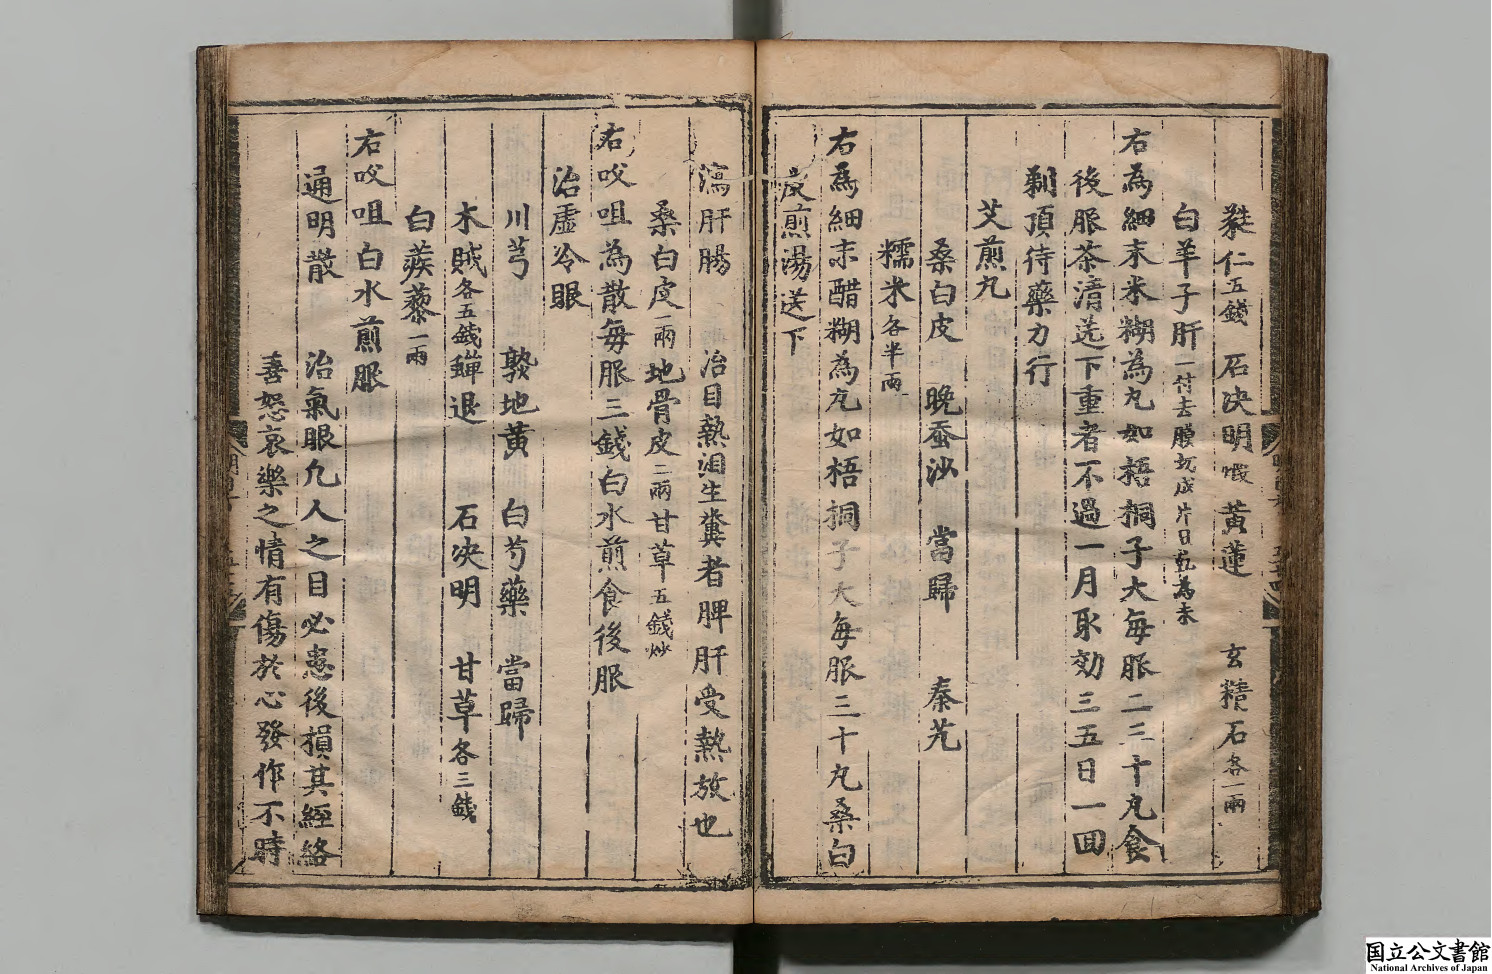 蕤仁五錢 石决明煨 黃蓮 玄精石各一兩
白羊子肝一付去膜切成片日乾為末
右為細末米糊為丸如梧桐子大每服二三十丸食
後服茶清送下重者不過一月取効三五日一回
剃頂待藥力行
艾煎丸
桑白皮 晚蚕沙 當歸 秦艽
糯米各半兩
右為細末醋糊為丸如梧桐子大每服三十丸桑白
皮煎湯送下
瀉肝腸 治目熱泪生糞者脾肝受熱放也
桑白皮一兩地骨皮二兩甘草五錢炒
右㕮咀為散每服三錢白水煎食後服
治虛冷眼
川芎 熟地黃 白芍藥 當歸
木賊各五錢蟬退 石决明 甘草各三錢
白蒺藜一兩
右㕮咀白水煎服
通明散 治氣眼凢人之目必患後損其經絡
喜怒哀樂之情有傷於心發作不時
国立公文書館
National Archives of Japan